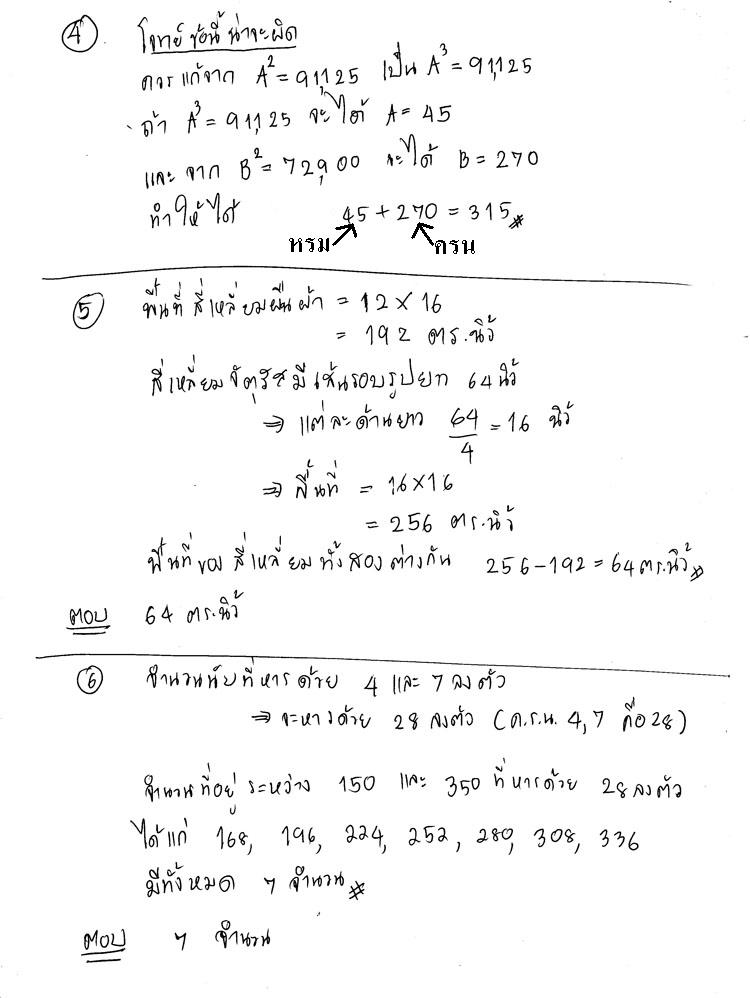 ④ โจทย์ข้อนี้น่าจะผิด
ควรแก้จาก A² = 91,125 เป็น A³ = 91,125
ถ้า A³ = 91,125 จะได้ A = 45
และจาก B² = 72,900 จะได้ B = 270
ทำให้ได้ 45 + 270 = 315 #
หรม ครน
⑤ พื้นที่สี่เหลี่ยมผืนผ้า = 12 × 16
= 192 ตร.นิ้ว
สี่เหลี่ยมจัตุรัสมีเส้นรอบรูปยาว 64 นิ้ว
⇒ แต่ละด้านยาว 64/4 = 16 นิ้ว
⇒ พื้นที่ = 16×16
= 256 ตร.นิ้ว
พื้นที่ของสี่เหลี่ยมทั้งสองต่างกัน 256 – 192 = 64 ตร.นิ้ว #
ตอบ 64 ตร.นิ้ว
⑥ จำนวนนับที่หารด้วย 4 และ 7 ลงตัว
⇒ จะหารด้วย 28 ลงตัว (ค.ร.น. 4, 7 คือ 28)
จำนวนที่อยู่ระหว่าง 150 และ 350 ที่หารด้วย 28 ลงตัว
ได้แก่ 168, 196, 224, 252, 280, 308, 336
มีทั้งหมด 7 จำนวน #
ตอบ 7 จำนวน